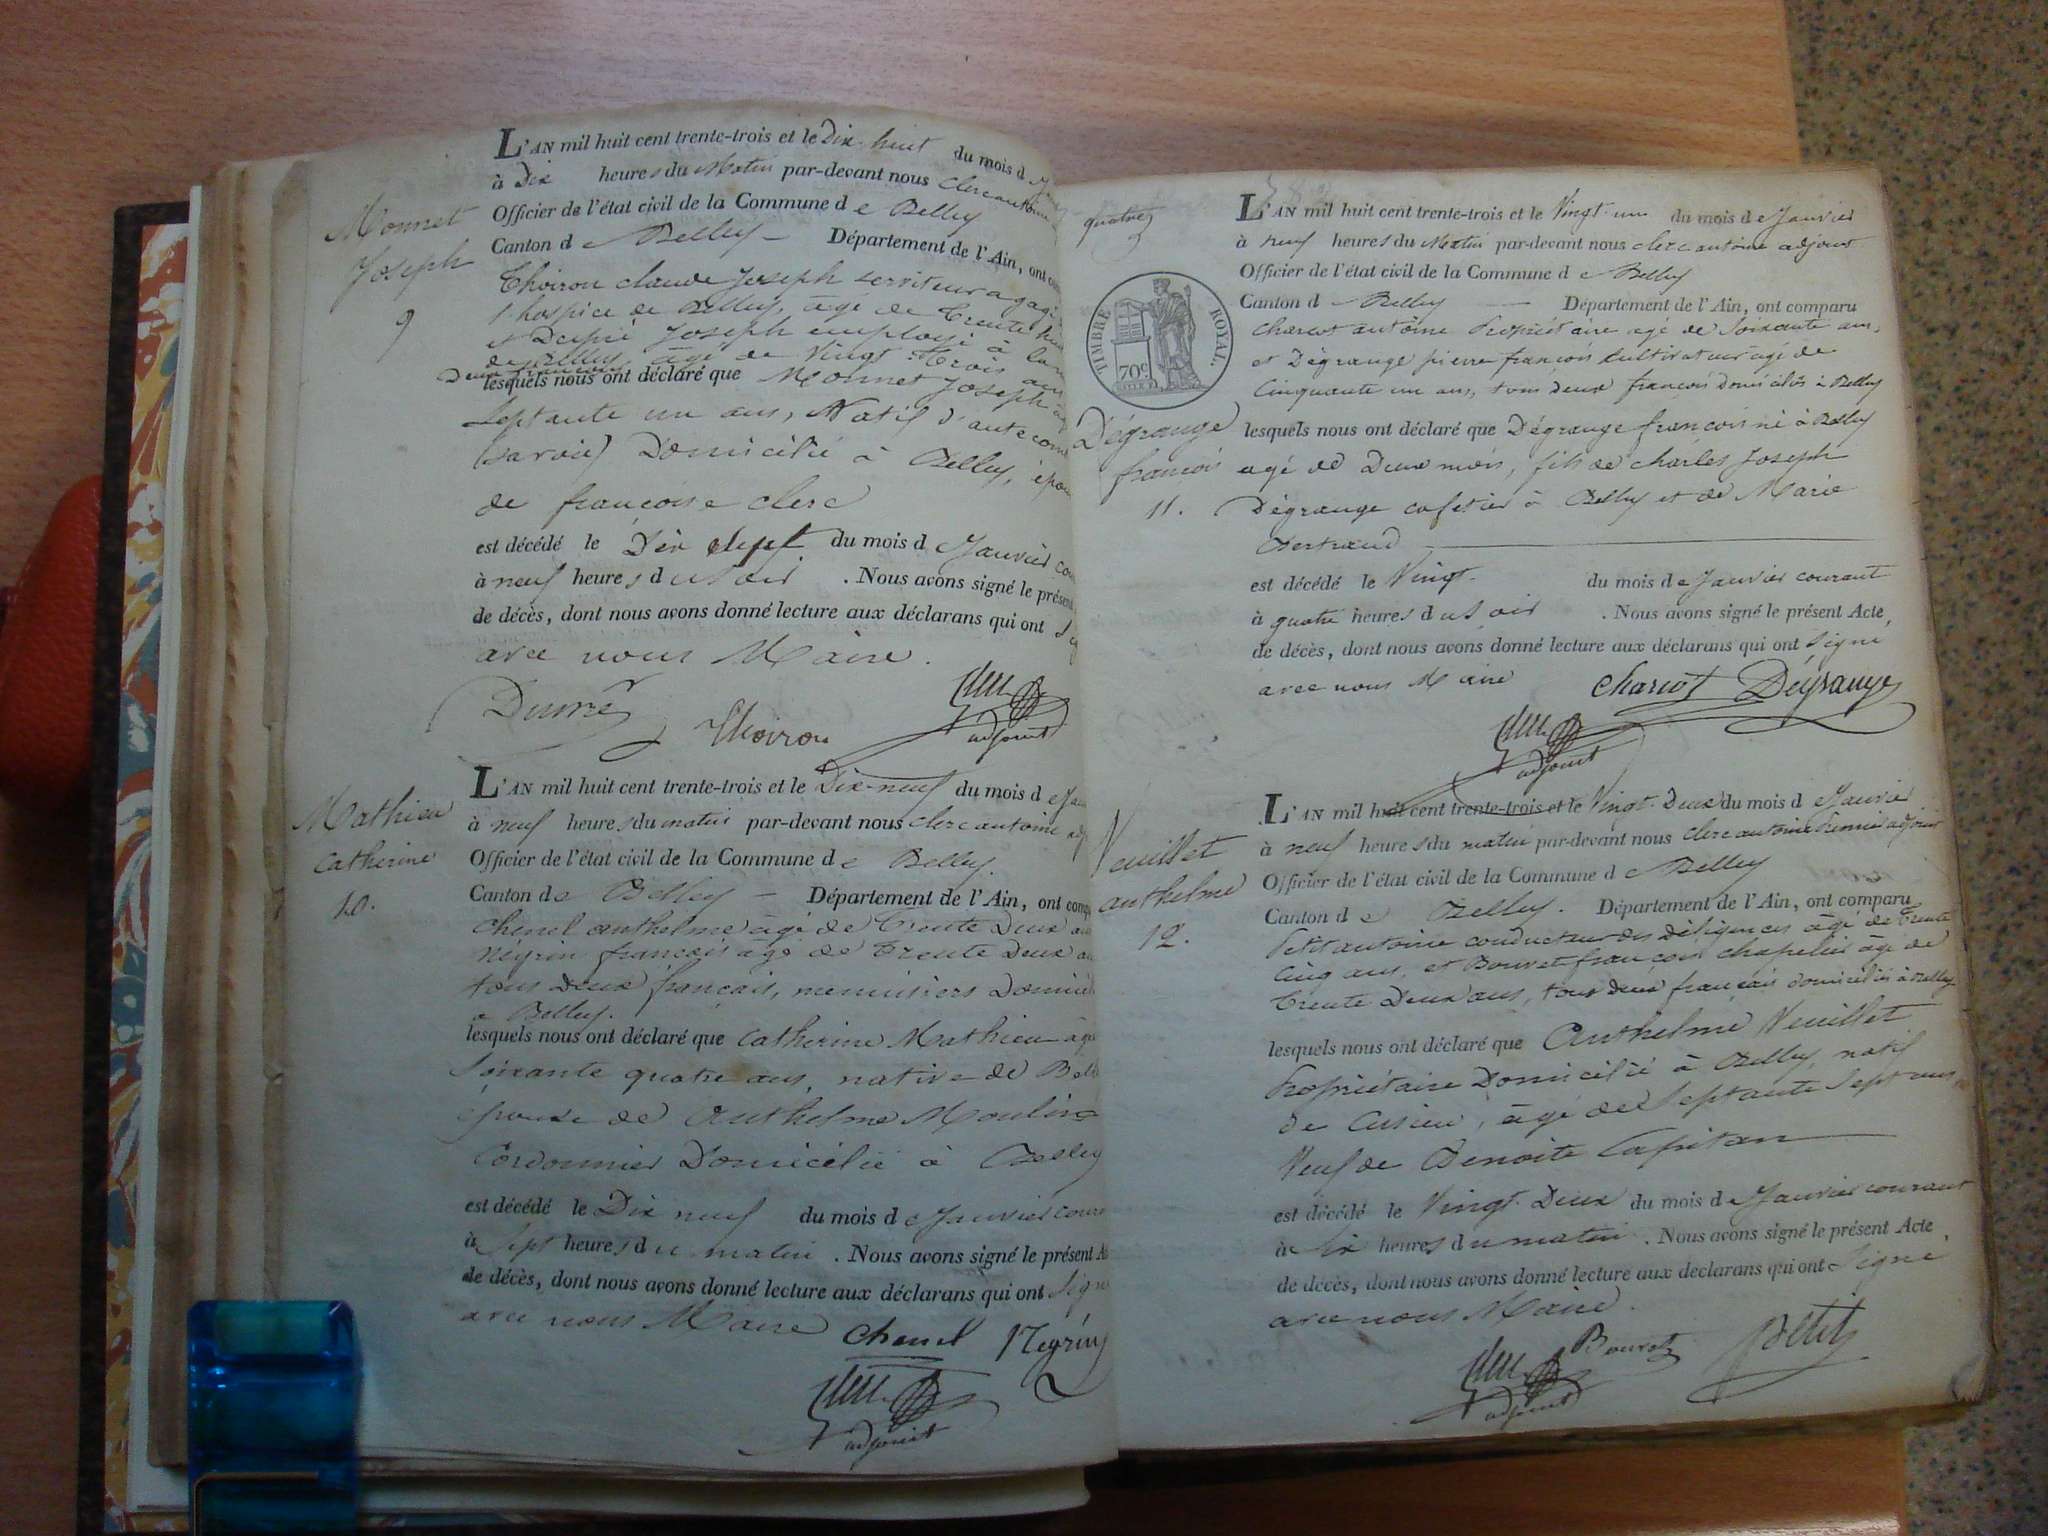 Monnet
Joseph
9
L'AN mil huit cent trente-trois et le Dix huit du mois d
à Dix heures du Matin par-devant nous clerc antoine
Officier de l'état civil de la Commune de Belley
Canton de Belley — Département de l'Ain, ont
Thoiron claude Joseph serviteur a gag
l'hospice de Belley, âgé de Trente huit
et Joseph employé à la
de Belley, âgé de Vingt Trois ans
Deux français
lesquels nous ont déclaré que Monnet Joseph
Septante un ans, Natif d'
(Savoie) Domicilié à Belley, épou
de françoise clerc
est décédé le Dix Sept du mois d Janvier cou
à neuf heures du soir . Nous avons signé le présent
de décès, dont nous avons donné lecture aux déclarans qui ont Sig
avec nous Maire.
Thoiron
adjoint
Mathieu
Catherine
10.
L'AN mil huit cent trente-trois et le Dix-neuf du mois de Jan
à neuf heures du matin par-devant nous clerc antoine adj
Officier de l'état civil de la Commune de Belley.
Canton de Belley — Département de l'Ain, ont comp
Chenel anthelme âgé de Trente Deux ans
Négrin français âgé de Trente Deux an
tous Deux français, menuisiers Domicil
a Belley.
lesquels nous ont déclaré que Catherine Mathieu âgé
Soixante quatre ans, native de Bell
épouse de Anthelme Moulin
Cordonnier Domicilié à Belley
est décédé le Dix neuf du mois de Janvier coura
à Sept heures du matin . Nous avons signé le présent A
de décès, dont nous avons donné lecture aux déclarans qui ont Signé
avec nous Maire
Chenel Négrin
adjoint
quatre
TIMBRE ROYAL.
70c
L'AN mil huit cent trente-trois et le Vingt-un du mois de Janvier
à neuf heures du Matin par-devant nous clerc antoine adjoint
Officier de l'état civil de la Commune de Belley
Canton d Belley — Département de l'Ain, ont comparu
Charcot antoine Propriétaire âgé de Soixante ans,
et Dégrange pierre françois Cultivateur âgé de
Cinquante un ans, tous Deux français Domiciliés à Belley
Dégrange
françois
11.
lesquels nous ont déclaré que Dégrange françois né à Belley
agé de Deux mois, fils de charles Joseph
Dégrange cafetier à Belley et de Marie
Bertrand
est décédé le Vingt du mois de Janvier courant
à quatre heures du soir . Nous avons signé le présent Acte,
de décès, dont nous avons donné lecture aux déclarans qui ont Signé
avec nous Maire
Charcot Dégrange
adjoint
Veuillet
anthelme
12.
L'AN mil huit cent trente-trois et le Vingt-Deux du mois d Janvier
à neuf heures du matin par-devant nous clerc antoine Premier adjoint
Officier de l'état civil de la Commune de Belley
Canton de Belley. Département de l'Ain, ont comparu
Petit antoine conducteur des diligences âgé de Trente
Cinq ans, et Bouvet françois chapelier âgé de
Trente Deux ans, tous deux français domiciliés à Belley
lesquels nous ont déclaré que Anthelme Veuillet
Propriétaire Domicilié à Belley, natif
de , âgé de Septante Sept ans,
Veuf de Benoite Capitan
est décédé le Vingt-Deux du mois de Janvier courant
à Six heures du matin . Nous avons signé le présent Acte
de décès, dont nous avons donné lecture aux déclarans qui ont Signé
avec nous Maire.
Bouvet Petit
adjoint